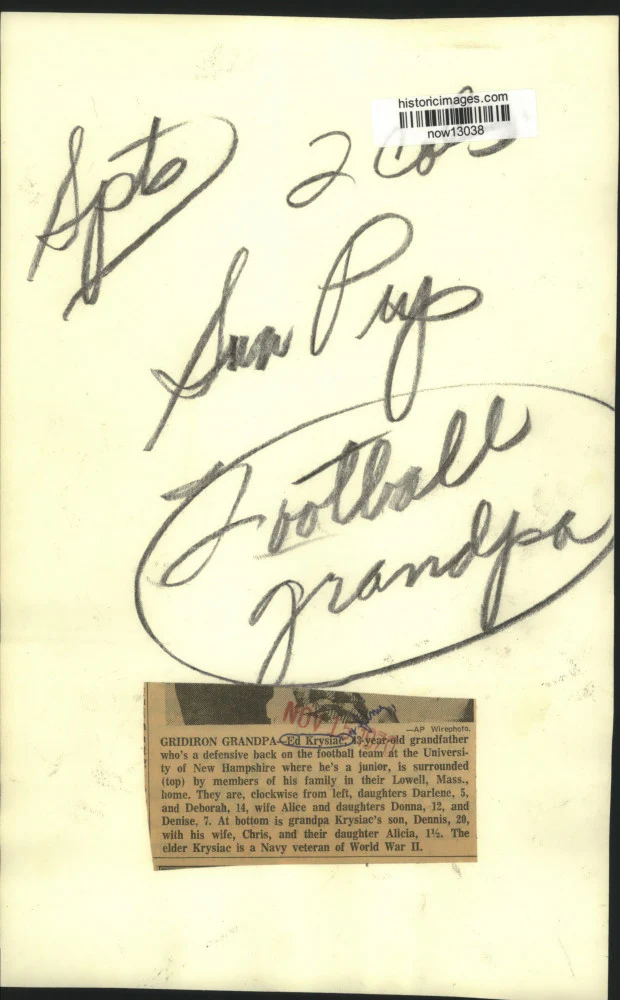 historicimages.com
now13038
Spts
2 Cols
Sun Pup
Football
grandpa
NOV
—AP Wirephoto.
GRIDIRON GRANDPA—Ed Krysiac, 43-year-old grandfather
who's a defensive back on the football team at the Universi-
ty of New Hampshire where he's a junior, is surrounded
(top) by members of his family in their Lowell, Mass.,
home. They are, clockwise from left, daughters Darlene, 5,
and Deborah, 14, wife Alice and daughters Donna, 12, and
Denise, 7. At bottom is grandpa Krysiac's son, Dennis, 20,
with his wife, Chris, and their daughter Alicia, 1½. The
elder Krysiac is a Navy veteran of World War II.